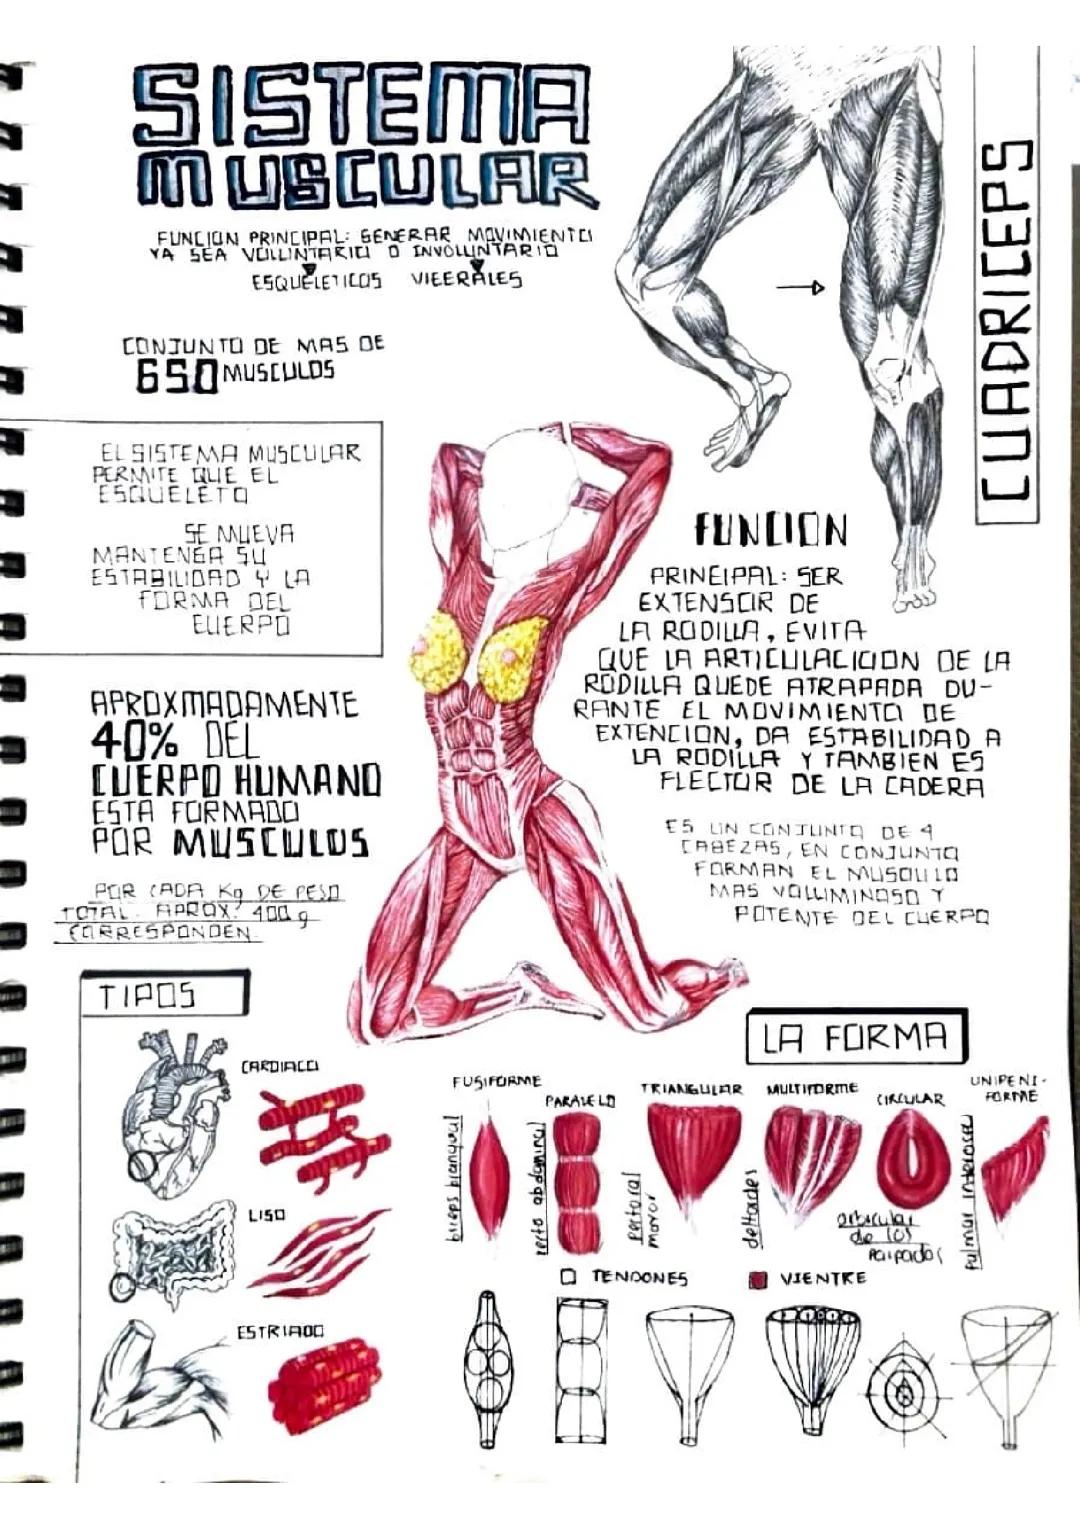 SISTEMA
MUSCULAR
FUNCION PRINCIPAL: GENERAR MOVIMIENTO
YA SEA VOLUNTARIO O INVOLUNTARIO
ESQUELETICOS VICERALES
CONJUNTO DE MAS DE
650 MUSCULOS
EL SISTEMA MUSCULAR
PERMITE QUE EL
ESQUELETO
SE MUEVA
MANTENGA SU
ESTABILIDAD Y LA
FORMA DEL
CUERPO
APROXMADAMENTE
40% DEL
CUERPO HUMANO
ESTA FORMADO
POR MUSCULOS
POR CADA Kg DE PESO
TOTAL APROX: 400 g
CORRESPONDEN
CUADRICEPS
FUNCION
PRINCIPAL: SER
EXTENSOR DE
LA RODILLA, EVITA
QUE LA ARTICULACICION DE LA
RODILLA QUEDE ATRAPADA DU-
RANTE EL MOVIMIENTO DE
EXTENCION, DA ESTABILIDAD A
LA RODILLA Y TAMBIEN ES
FLECTOR DE LA CADERA
ES UN CONJUNTO DE 4
CABEZAS, EN CONJUNTO
FORMAN EL MUSCULO
MAS VOLUMINOSO Y
POTENTE DEL CUERPO
TIPOS
CARDIACO
LISO
ESTRIADO
LA FORMA
FUSIFORME
biceps branquial
PARALELO
recto abdominal
TRIANGULAR
pectoral
mayor
MULTIFORME
deltoides
CIRCULAR
orbicular
de los
parpados
UNIPENI-
FORME
Pulmar interoseo
TENDONES
VIENTRE